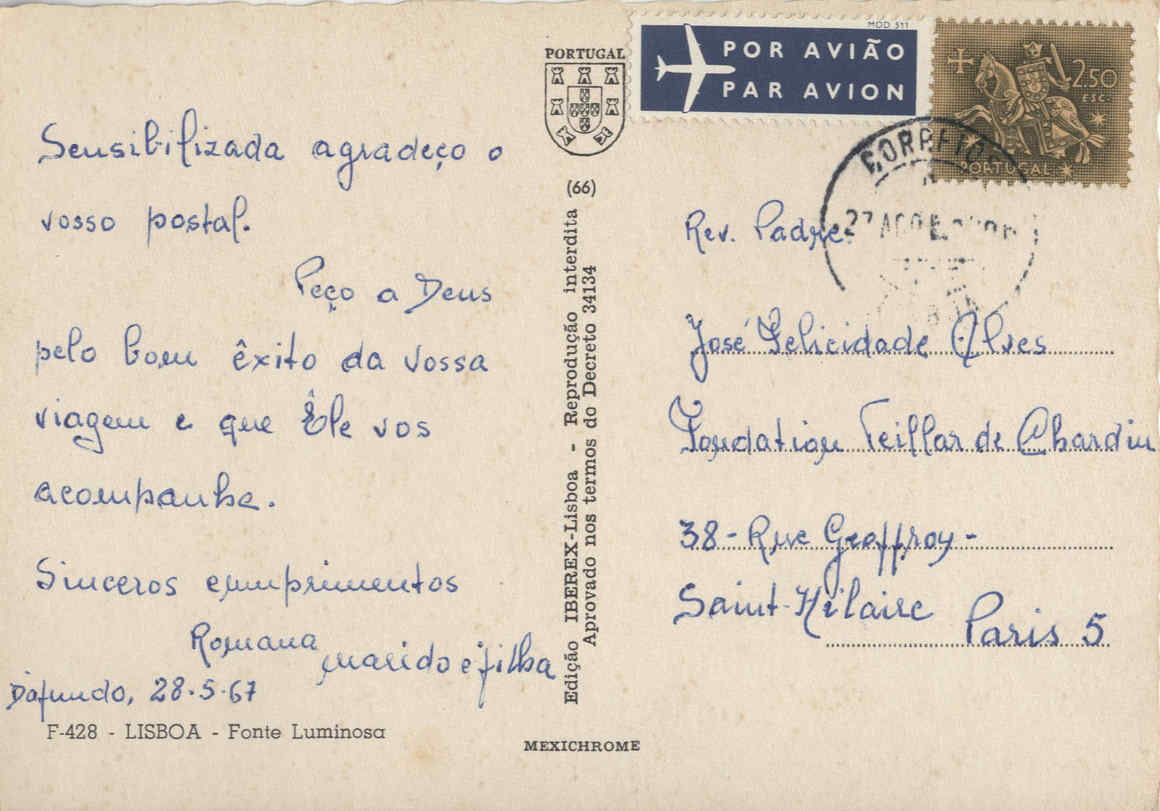 PORTUGAL
MOD 511
POR AVIÃO
PAR AVION
2$50
ESC.
PORTUGAL
CORREIOS
Sensibilizada agradeço o
vosso postal.
Peço a Deus
pelo bom êxito da vossa
viagem e que Êle vos
acompanhe.
Sinceros cumprimentos
Romana
marido e filha
Dáfundo, 28-5-67
F-428 - LISBOA - Fonte Luminosa
(66)
Edição IBEREX-Lisboa - Reprodução interdita
Aprovado nos termos do Decreto 34134
MEXICHROME
Rev. Padre
José Felicidade Alves
Fondation Teillar de Chardin
38-Rue Geoffroy-
Saint-Hilaire
Paris 5